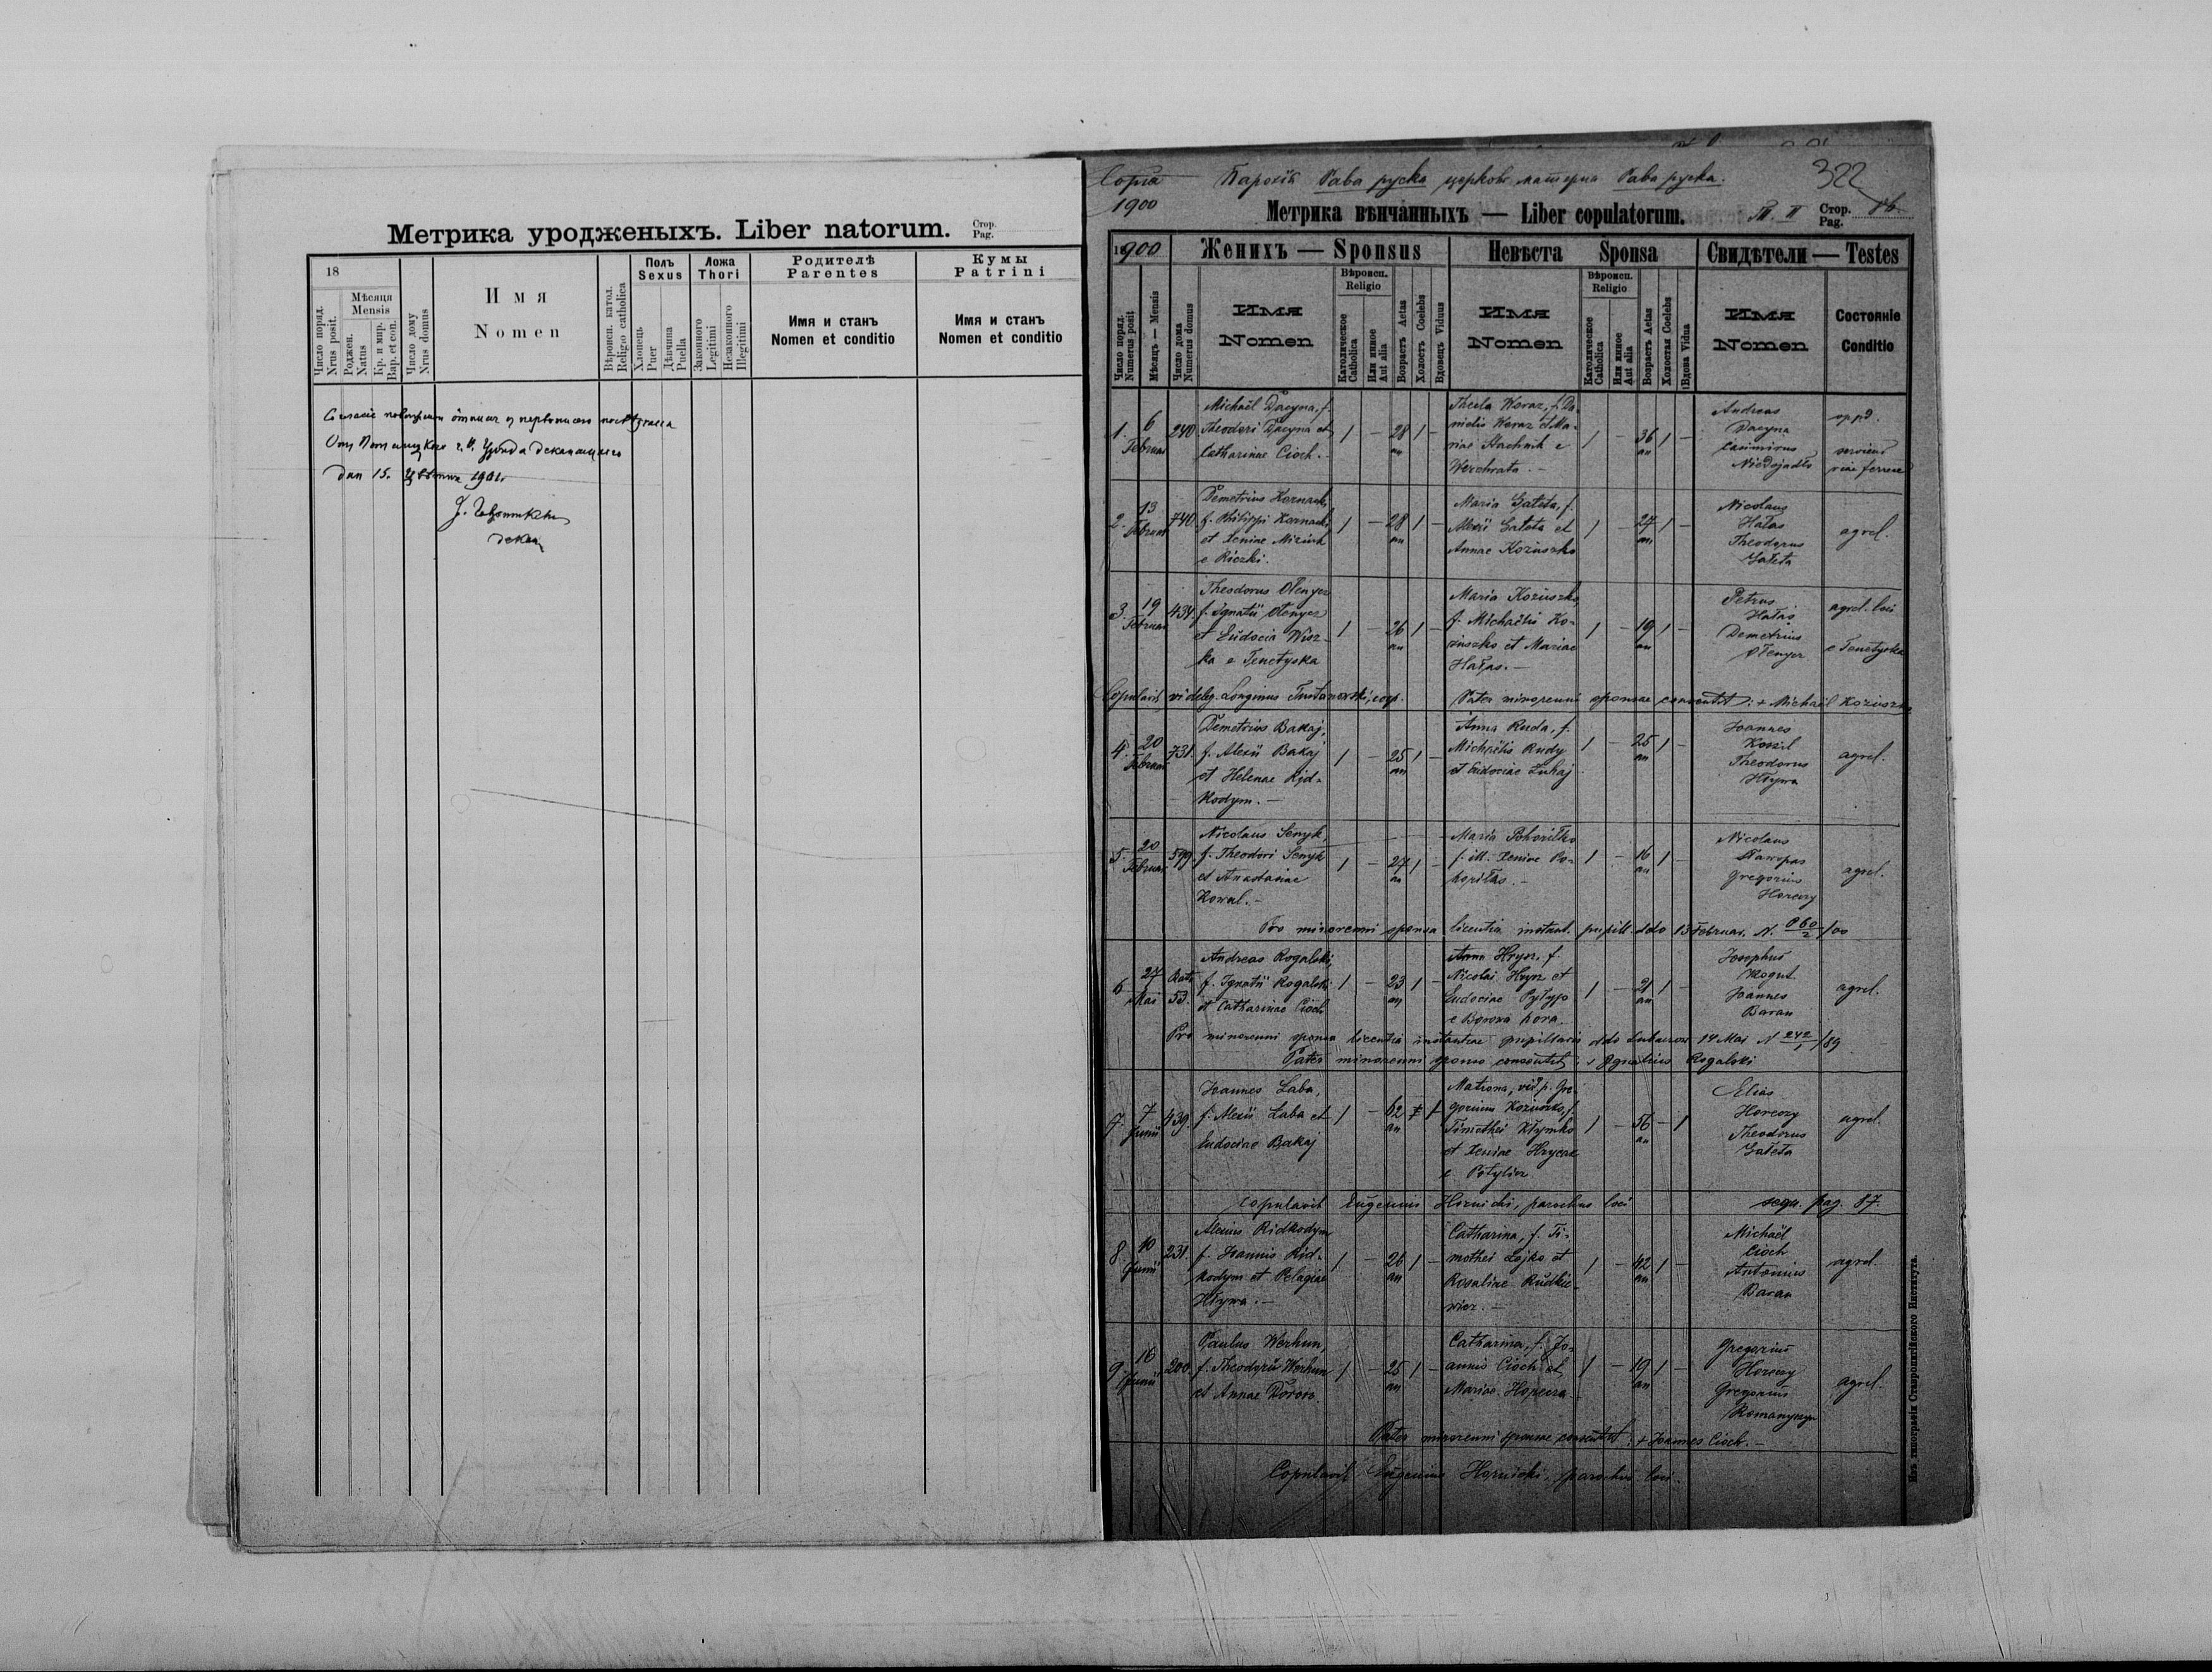 Метрика уродженыхъ. Liber natorum. Стор. Pag.
18
Число поряд. Nrus posit.
Мѣсяця Mensis
Роджен. Natus
Кр. и мир. Bap. et con.
Число дому Nrus domus
Имя
Nomen
Вѣроисп. катол. Religio catholica
Полъ Sexus
Хлопець Puer
Дѣвчина Puella
Ложа Thori
Законного Legitimi
Незаконного Illegitimi
Родителѣ
Parentes
Имя и станъ
Nomen et conditio
Кумы
Patrini
Имя и станъ
Nomen et conditio
дня 15. 1901
декан
Copia Парохія Рава руска церковь матерна Рава руска. 322
1900
Метрика вѣнчанныхъ — Liber copulatorum. T. II Стор. Pag. 86
1900
Женихъ — Sponsus
Невѣста Sponsa
Свидѣтели — Testes
Число поряд. Numerus posit
Мѣсяцъ — Mensis
Число дома Numerus domus
Имя
Nomen
Вѣроисп. Religio
Католическое Catholica
Или иное Aut alia
Возрастъ Aetas
Холостъ Coelebs
Вдовецъ Viduus
Имя
Nomen
Вѣроисп. Religio
Католическое Catholica
Или иное Aut alia
Возрастъ Aetas
Холостая Coelebs
Вдова Vidua
Имя
Nomen
Состояніе
Conditio
1. 6 Februar 240
Michaël Dacyna, f.
Theodori Dacyna et
Catharinae Cioch. -
1 - 28 an 1 -
Thecla Woraz, f. Da-
nielis Woraz et Ma-
riae Stachnik e
Werchrata. -
1 - 36 an 1 -
Andreas
Dacyna
Casimirus
Niedojadło
oppd.
serviens
viae ferreae
2. 13 Februar 740
Demetrius Kornach,
f. Philippi Kornach
et Xeniae
e Riczki.
1 - 28 an 1 -
Maria Gałeta, f.
Alexii Gałeta et
Annae Koziuszko
1 - 27 an 1 -
Nicolaus
Hałas
Theodorus
Gałeta
agrcl.
3. 19 Februar 434
Theodorus Ołenycz
f. Ignatii Ołenycz
et Eudocia Wisz-
ka e Tenetyska
1 - 26 an 1 -
Maria Koziuszko
f. Michaëlis Ko-
ziuszko et Mariae
Hałas. -
1 - 19 an 1 -
Petrus
Hałas
Demetrius
Ołenycz
agrcl. loci
e Tenetyska
Copulavit vi deleg. Longinus coop. Pater minorenni sponsae consentit: + Michaël Koziuszko
4. 20 Februar 731
Demetrius Bakaj,
f. Alexii Bakaj
et Helenae Rid-
kodym. -
1 - 25 an 1 -
Anna Ruda, f.
Michaëlis Rudy
et Eudociae Łuhaj
1 - 25 an 1 -
Joannes
Kozil
Theodorus
Hływa
agrcl.
5. 20 Februar 599
Nicolaus Senyk,
f. Theodori Senyk
et Anastasiae
Kowal. -
1 - 27 an 1 -
Maria Pohoriłko
f. ill. Xeniae Po-
horiłko. -
1 - 16 an 1 -
Nicolaus
Gregorius
Horeczy
agrcl.
Pro minorenni sponsa licentia instant. pupill. ddo 13 Februar. N. 060/2 /00
6 27 Mai 53.
Andreas Rogalski,
f. Ignatii Rogalski
et Catharinae Cioch
1 - 23 an 1 -
Anna Hrysz, f.
Nicolai Hrysz et
Eudociae Pyłypo
e Borowa hora.
1 - 21 an 1 -
Josephus
Mogut
Joannes
Baran
agrcl.
Pro minorenni sponsa licentia instantiae pupillaris ddo Lubaczow 14 Mai N 242/1 /89
Pater minorenni sponso consentit: + Ignatius Rogalski
7. 7 Junii 439.
Joannes Laba,
f. Alexii Laba et
Eudociae Bakaj
1 - 62 an
Matrona, vid. p. Gre-
gorium Koziuszko, f.
Timothei Kłymko
et Xeniae Hrycak
e Potylicz
1 - 56 an - 1
Elias
Horeczy
Theodorus
Gałeta
agrcl.
Copulavit Eugenius Hornicki, parochus loci sequ. pag. 87.
8. 10 Junii 231.
Alexius Ridkodym
f. Joannis Rid-
kodym et Pelagiae
Hływa. -
1 - 26 an 1 -
Catharina, f. Ti-
mothei Lejko et
Rosaliae Rudkie-
wicz. -
1 - 42 an 1 -
Michaël
Cioch
Antonius
Baran
agrcl.
9 16 Junii 200.
Paulus Werhun,
f. Theodori Werhun
et Annae Dorosz
1 - 25 an 1 -
Catharina, f. Jo-
annis Cioch et
Mariae
1 - 19 an 1 -
Gregorius
Horeczy
Gregorius
Romanyszyn
agrcl.
Pater minorenni sponsae consentit: + Joannes Cioch. -
Copulavit Eugenius Hornicki, parochus loci.
Изъ типографіи Ставропигійского Института.